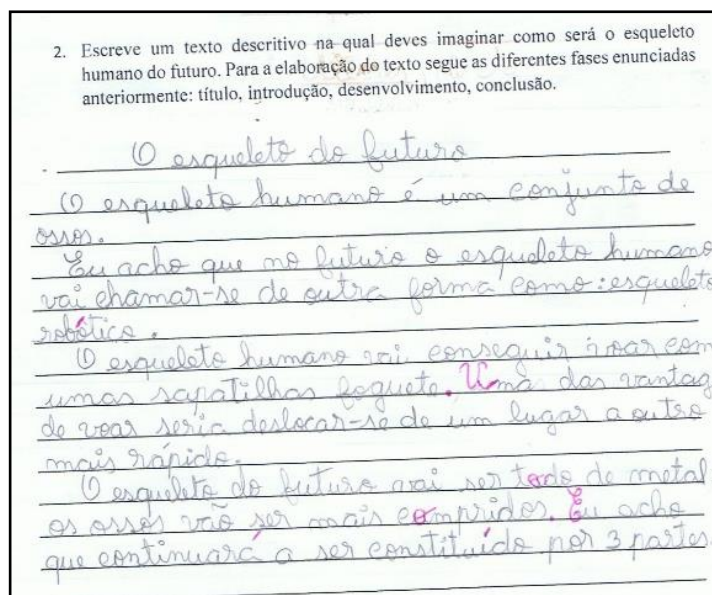 2. Escreve um texto descritivo na qual deves imaginar como será o esqueleto
humano do futuro. Para a elaboração do texto segue as diferentes fases enunciadas
anteriormente: título, introdução, desenvolvimento, conclusão.
O esqueleto do futuro
O esqueleto humano é um conjunto de
ossos.
Eu acho que no futuro o esqueleto humano
vai chamar-se de outra forma como: esqueleto
robótico.
O esqueleto humano vai conseguir voar com
umas sapatilhas foguete. Uma das vantag
de voar seria deslocar-se de um lugar a outro
mais rápido.
O esqueleto do futuro vai ser todo de metal
os ossos vão ser mais compridos. Eu acho
que continuará a ser constituído por 3 partes.